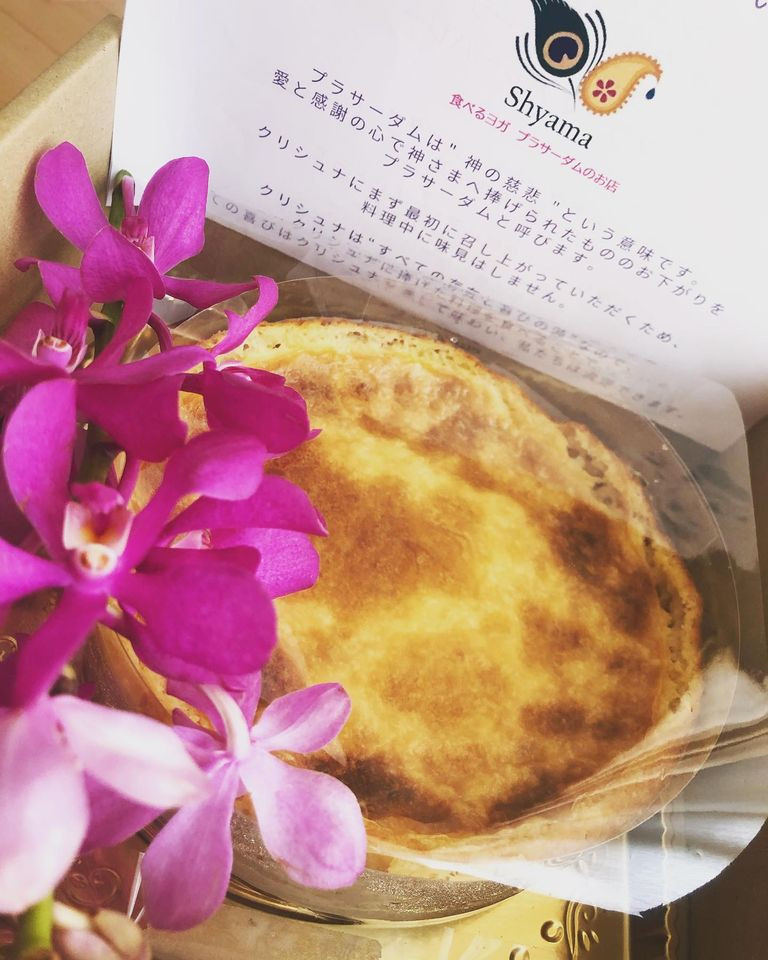 Shyama
食べるヨガ プラサーダムのお店
プラサーダムは"神の慈悲"という意味です。
愛と感謝の心で神さまへ捧げられたもののお下がりを
プラサーダムと呼びます。
クリシュナにまず最初に召し上がっていただくため、
料理中に味見はしません。
クリシュナは"すべての
ての喜びはクリシュナ